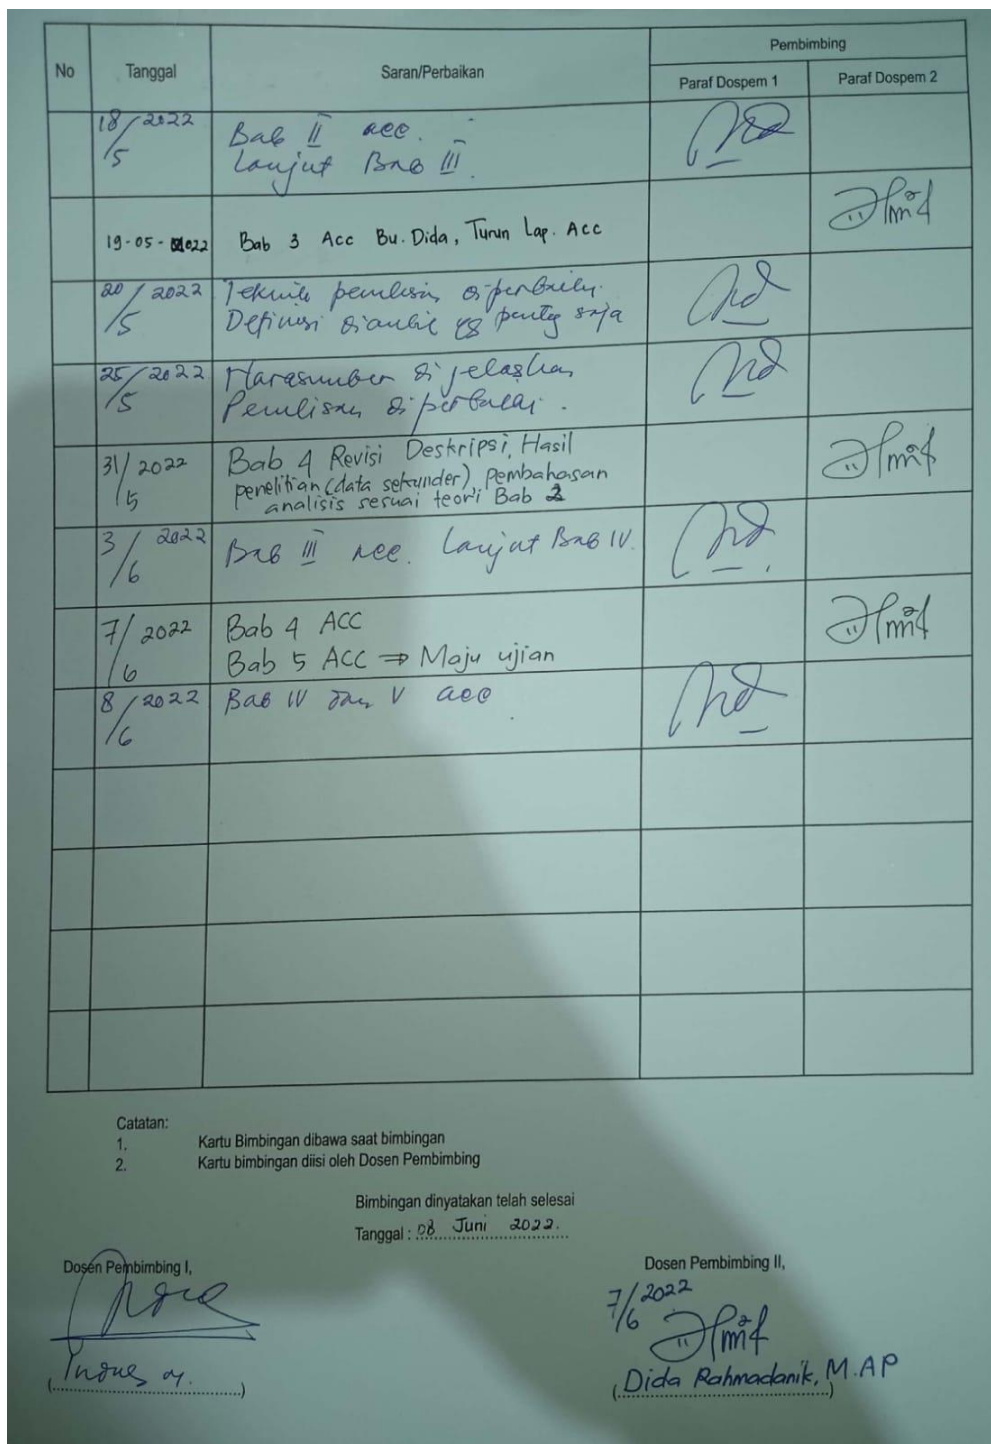 No Tanggal Saran/Perbaikan Pembimbing
Paraf Dospem 1 Paraf Dospem 2
18/5 2022 Bab II acc.
Lanjut Bab III.
19-05-2022 Bab 3 Acc Bu. Dida, Turun Lap. Acc
20/5 2022 Teknik penulisan diperbaiki.
Definisi diambil yg penting saja
25/5 2022 Narasumber dijelaskan
Penulisan diperbaiki.
31/5 2022 Bab 4 Revisi Deskripsi, Hasil
penelitian (data sekunder), pembahasan
analisis sesuai teori Bab 2
3/6 2022 Bab III acc. Lanjut Bab IV.
7/6 2022 Bab 4 ACC
Bab 5 ACC ⇒ Maju ujian
8/6 2022 Bab IV dan V acc
Catatan:
1. Kartu Bimbingan dibawa saat bimbingan
2. Kartu bimbingan diisi oleh Dosen Pembimbing
Bimbingan dinyatakan telah selesai
Tanggal : 08 Juni 2022.
Dosen Pembimbing I,
Dosen Pembimbing II,
7/6 2022
(Dida Rahmadanik, M.AP)